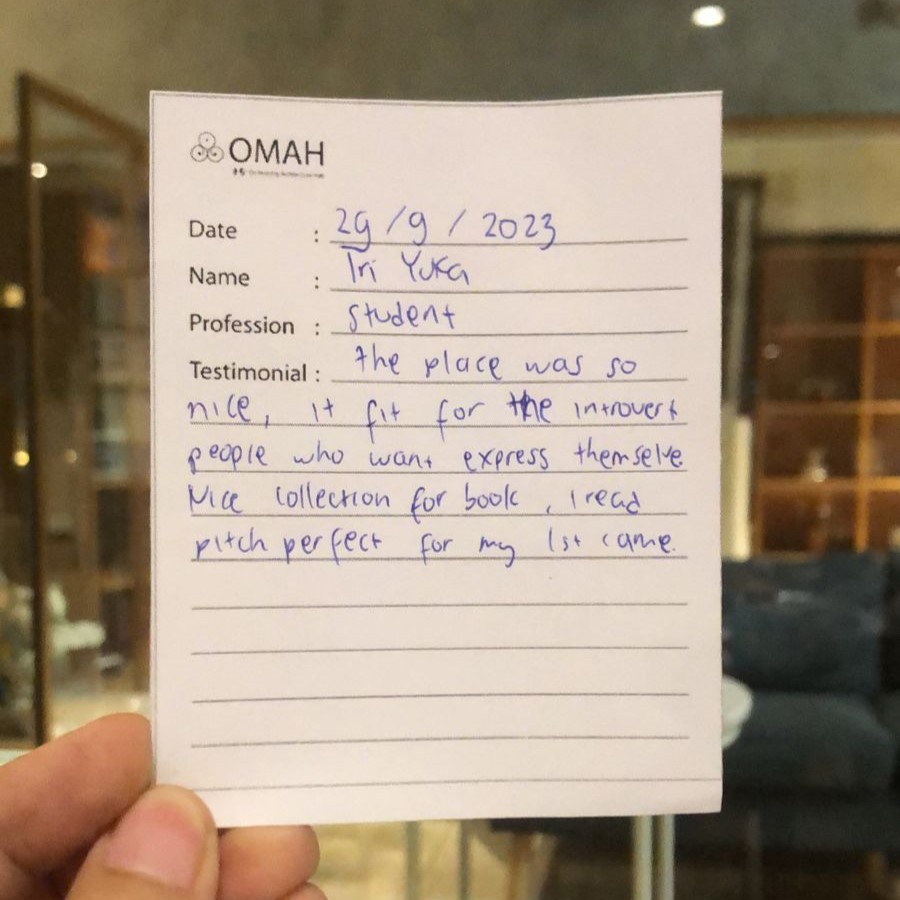 OMAH
Date : 29 / 9 / 2023
Name : Tri Yuka
Profession : Student
Testimonial : the place was so
nice, it fit for the introvert
people who want express themselve
Nice collection for book, I read
pitch perfect for my 1st came.